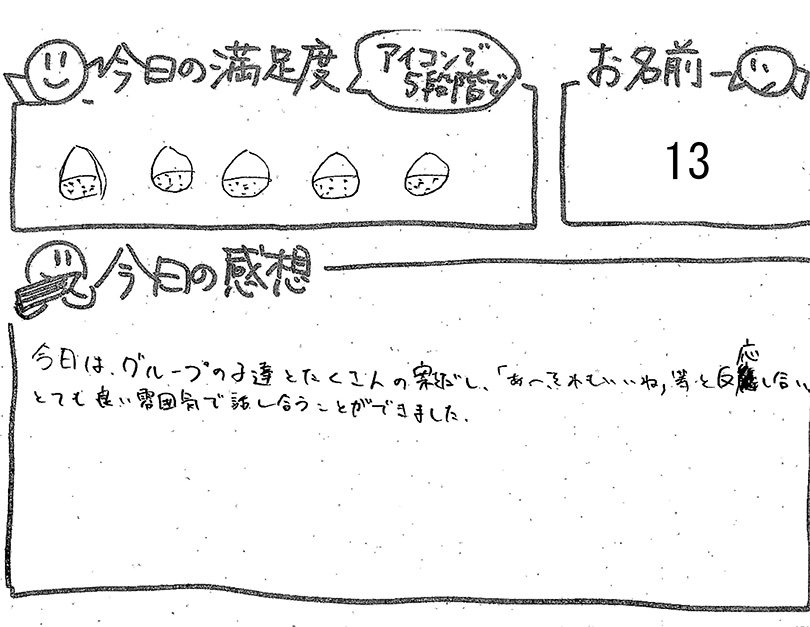 今日の満足度
アイコンで
5段階で
お名前
13
今日の感想
今日は、グループの子達とたくさんの案だし、「あ〜それもいいね」等と反応し合い、
とても良い雰囲気で話し合うことができました。